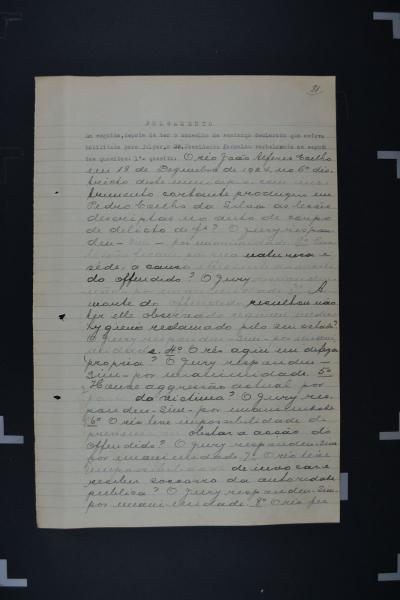 21
JULGAMENTO
Em seguida, depois de ter o conselho de sentença declarado que estava
habilitado para julgar, o Dr. Presidente formulou verbalmente os seguin
tes quesitos: 1º quesito: O réo João Coelho
em 18 de Dezembro de 1924, no 6º dis
tricto deste municipio com ins
trumento cortante produziu em
Pedro Coelho da Silva as lesões
descriptas no auto de corpo
de delicto de fs? O Jury respon
deu - Sim - por unanimidade. 2º
natureza e
séde, a causa
do offendido? O Jury
A
morte do offendido resultou não
ter elle observado regimen medico
hygienico reclamado pelo seu estado?
O Jury respondeu - Sim - por unani
midade. 4º O réo agiu em defeza
propria? O Jury respondeu -
Sim - por unanimidade. 5º
Houve aggressão actual por
parte da victima? O Jury res
pondeu - Sim - por unanimidade
6º O réo teve impossibilidade de
obstar a acção do
offendido? O Jury respondeu Sim
por unanimidade. 7º O réo teve
impossibilidade de invocar e
receber soccorro da autoridade
publica? O Jury respondeu - Sim -
por unanimidade. 8º O réo